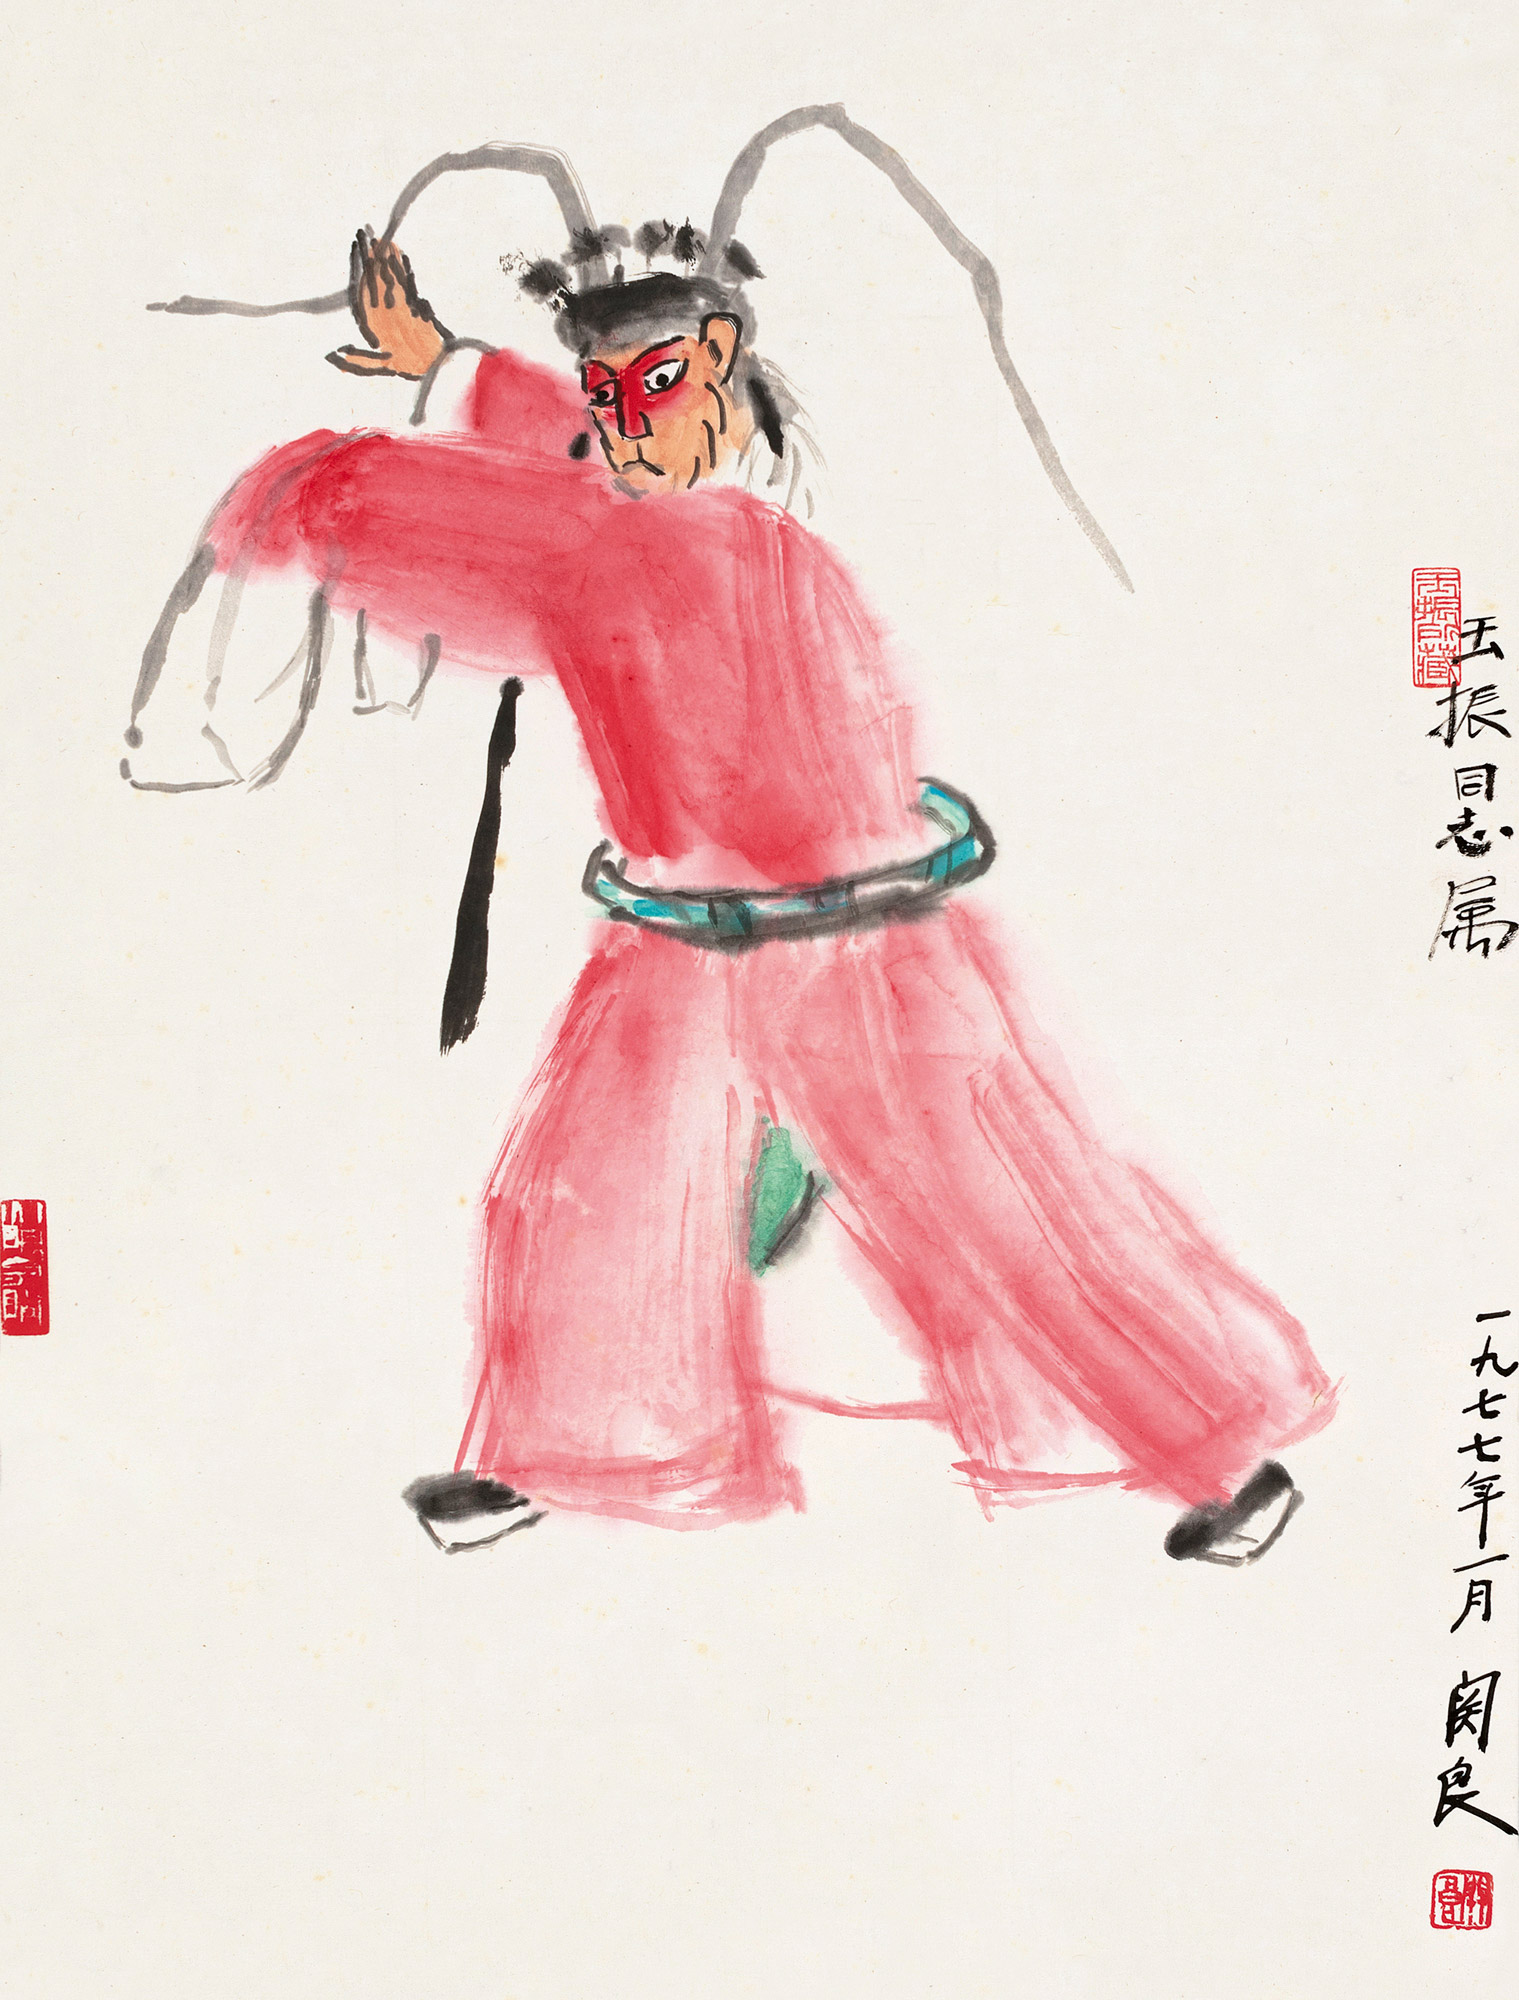 玉振同志属 一九七七年一月 関良